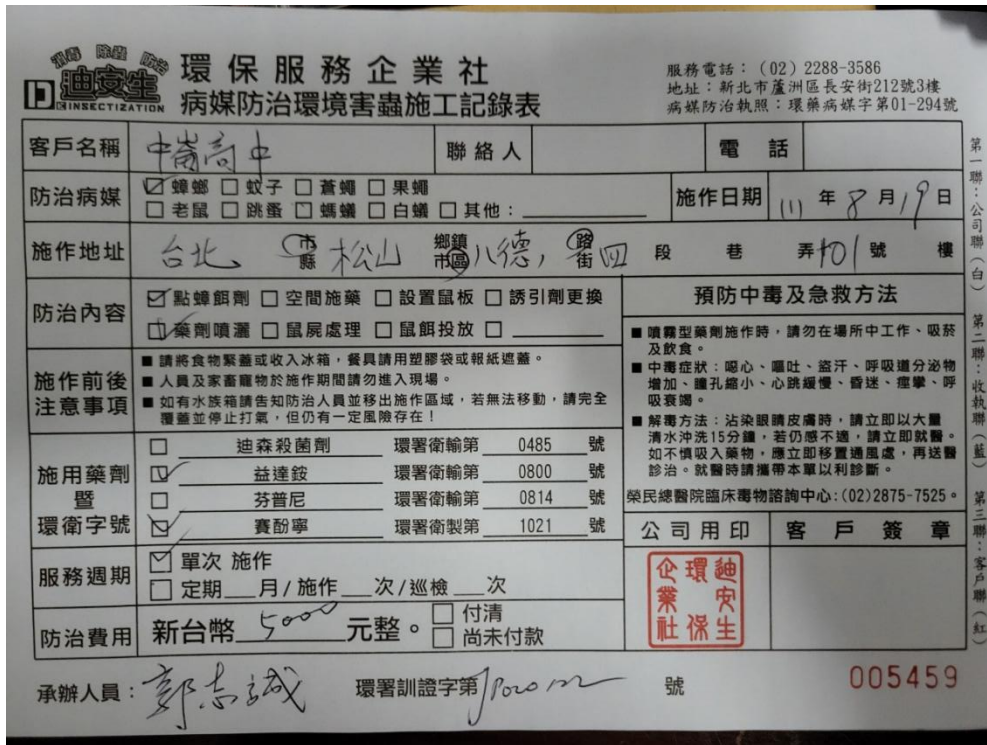 消毒 除蟲 防治
迪安生
INSECTIZATION
環保服務企業社
病媒防治環境害蟲施工記錄表
服務電話：(02) 2288-3586
地址：新北市蘆洲區長安街212號3樓
病媒防治執照：環藥病媒字第01-294號
客戶名稱 中崙高中 聯絡人 電話
防治病媒 ☑蟑螂 □蚊子 □蒼蠅 □果蠅
□老鼠 □跳蚤 □螞蟻 □白蟻 □其他：
施作日期 111年8月19日
施作地址 台北 市縣 松山 鄉鎮市區 八德 路街 四 段 巷 弄 101 號 樓
防治內容 ☑點蟑餌劑 □空間施藥 □設置鼠板 □誘引劑更換
☑藥劑噴灑 □鼠屍處理 □鼠餌投放 □
施作前後注意事項
■ 請將食物緊蓋或收入冰箱，餐具請用塑膠袋或報紙遮蓋。
■ 人員及家畜寵物於施作期間請勿進入現場。
■ 如有水族箱請告知防治人員並移出施作區域，若無法移動，請完全
覆蓋並停止打氣，但仍有一定風險存在！
施用藥劑暨環衛字號
□ 迪森殺菌劑 環署衛輸第 0485 號
☑ 益達銨 環署衛輸第 0800 號
□ 芬普尼 環署衛輸第 0814 號
☑ 賽酚寧 環署衛製第 1021 號
服務週期 ☑單次 施作
□定期 月/施作 次/巡檢 次
防治費用 新台幣 5000 元整。 □付清
□尚未付款
預防中毒及急救方法
■ 噴霧型藥劑施作時，請勿在場所中工作、吸菸
及飲食。
■ 中毒症狀：噁心、嘔吐、盜汗、呼吸道分泌物
增加、瞳孔縮小、心跳緩慢、昏迷、痙攣、呼
吸衰竭。
■ 解毒方法：沾染眼睛皮膚時，請立即以大量
清水沖洗15分鐘，若仍感不適，請立即就醫。
如不慎吸入藥物，應立即移置通風處，再送醫
診治。就醫時請攜帶本單以利診斷。
榮民總醫院臨床毒物諮詢中心:(02)2875-7525。
公司用印 客戶簽章
迪安生環保企業社
承辦人員：郭志誠 環署訓證字第 號
005459
第一聯：公司聯（白） 第二聯：收執聯（藍） 第三聯：客戶聯（紅）